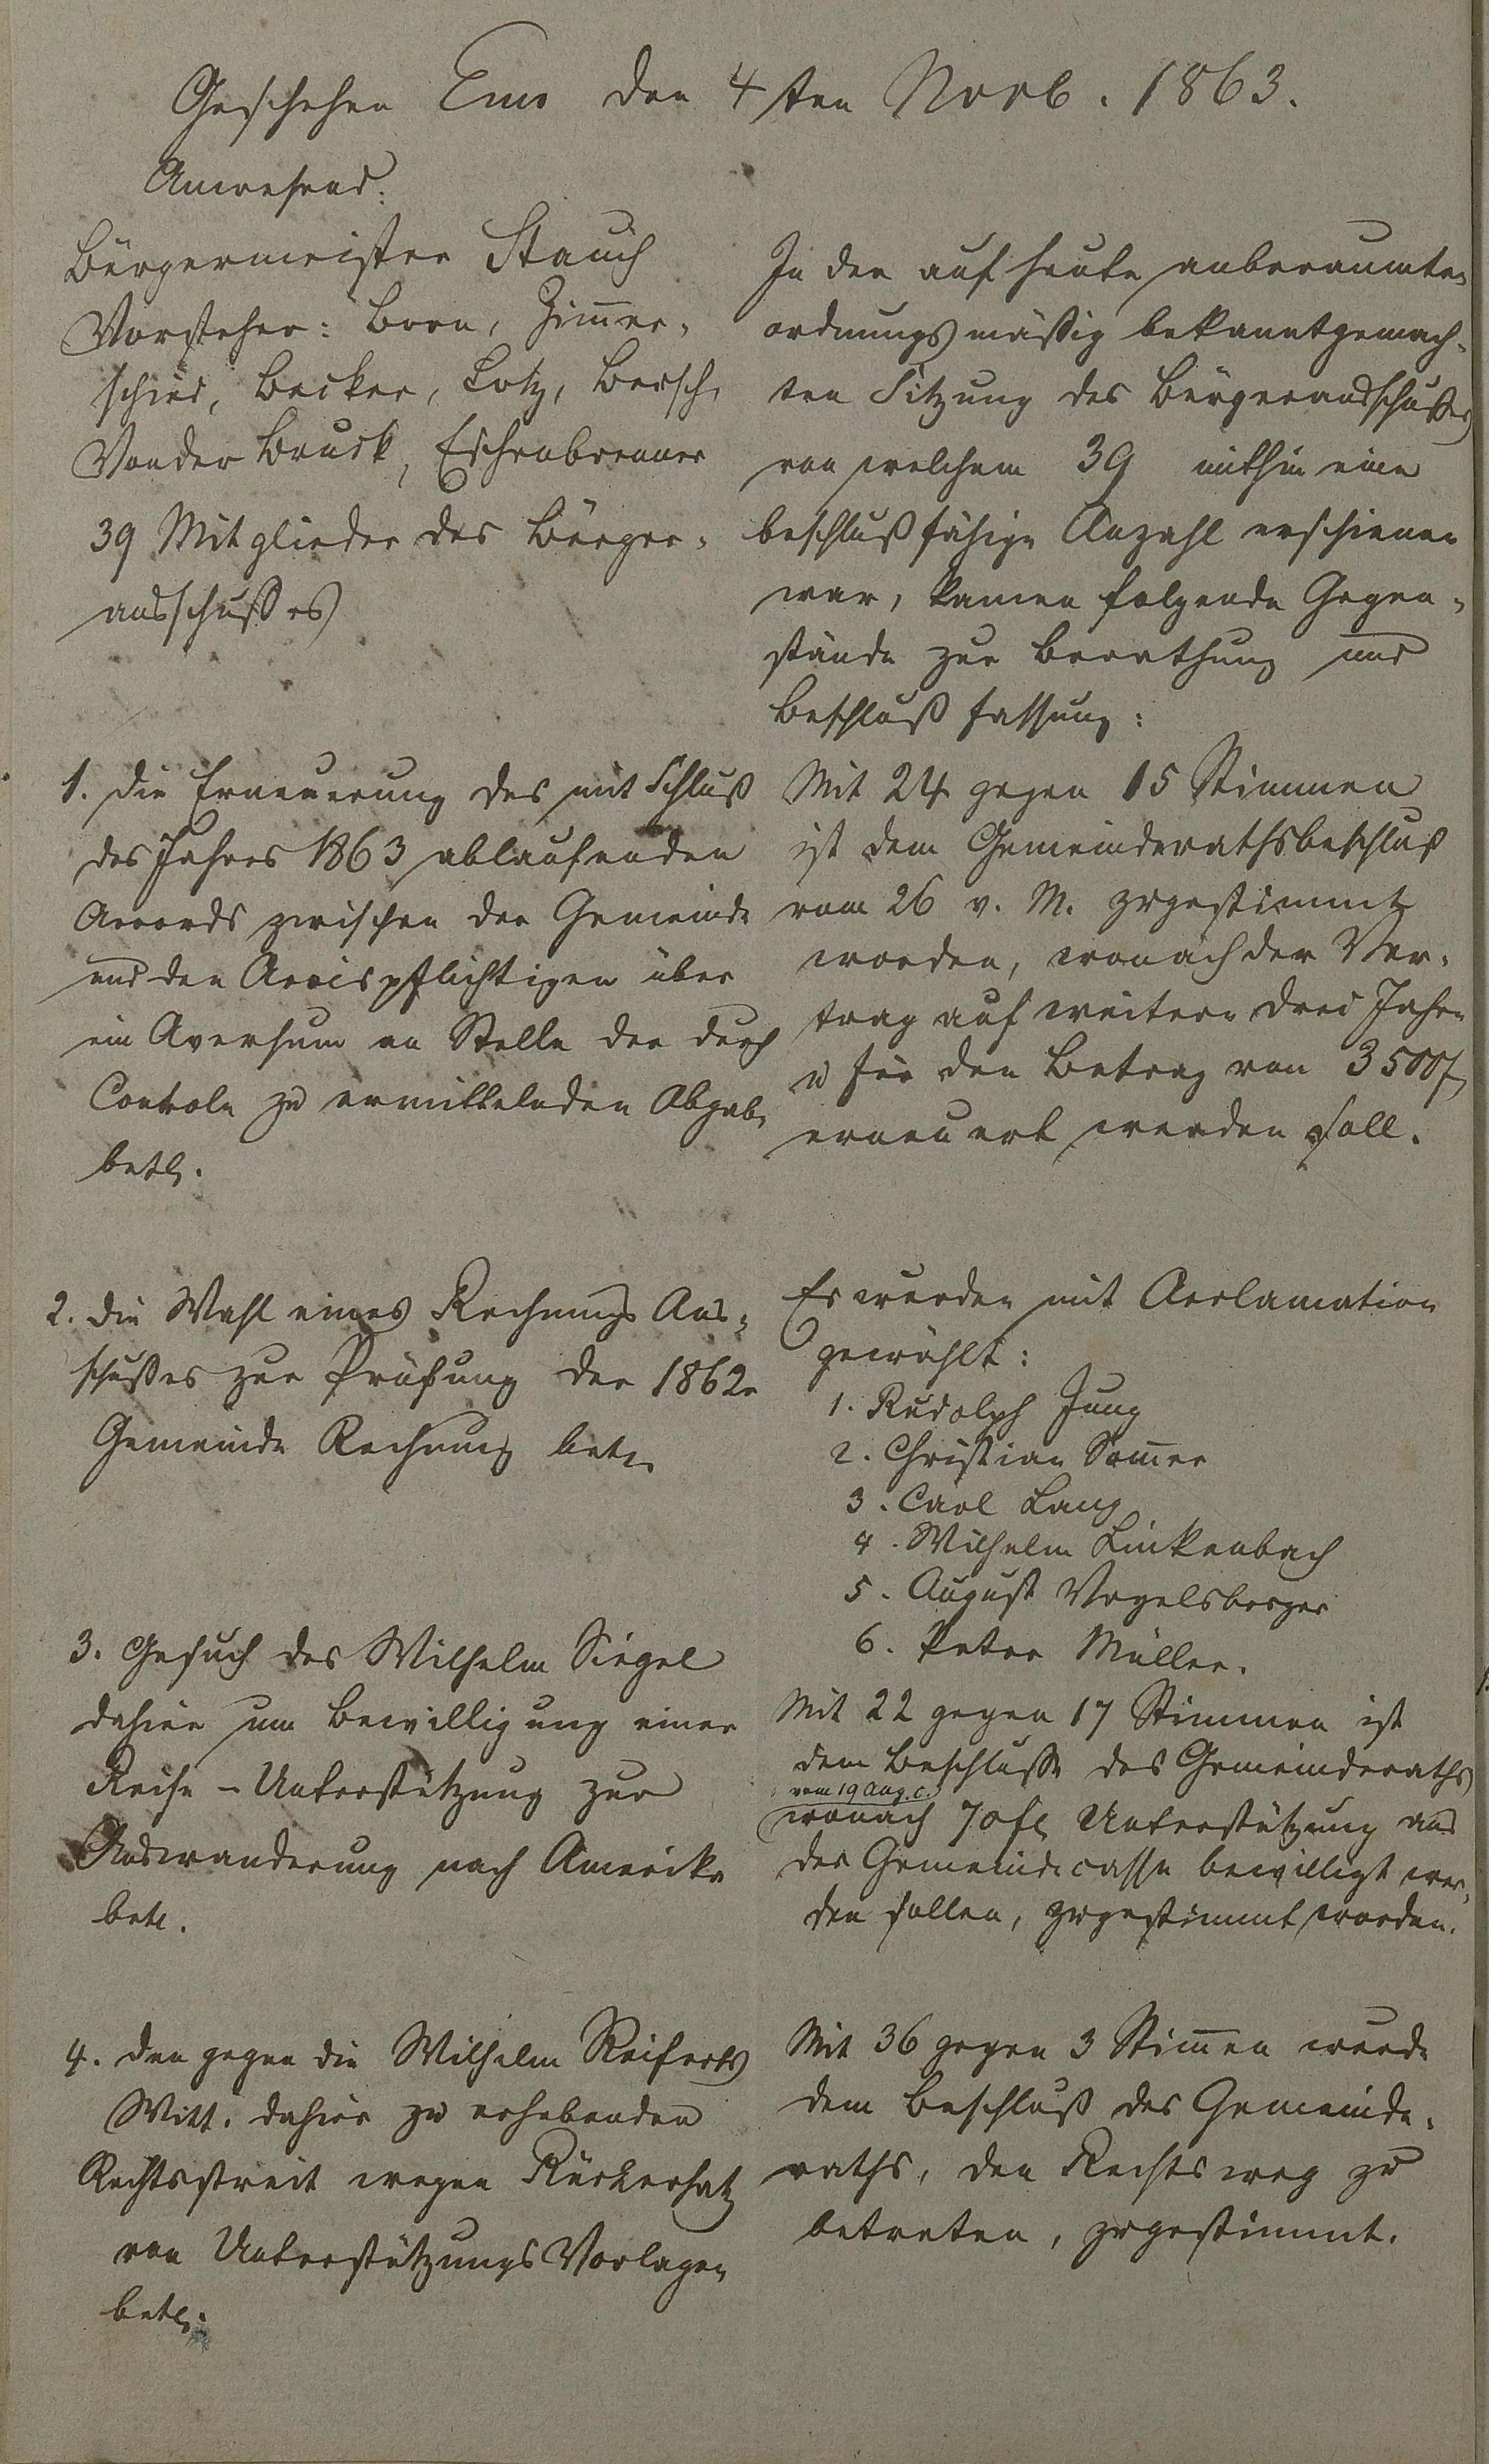 Geschehen Ems den 4ten Novb. 1863.
Anwesend:
Bürgermeister Stauch
Vorsteher: Born, Zim̄er-
schied, Becker, Lotz, Bersch,
Vonder Bruck, Eschenbrenner
39 Mitglieder des Bürger-
ausschusses
In der auf heute anberaumten
ordnungsmäßig bekanntgemach-
ten Sitzung des Bürgerausschußes
von welchem 39 mithin eine
beschlußfähige Anzahl erschienen
war, kamen folgende Gegen-
stände zur Berathung und
Beschlußfassung:
1. Die Erneuerung des mit Schluß
des Jahres 1863 ablaufenden
Accords zwischen der Gemeinde
und den Accispflichtigen über
ein Aversum an Stelle der durch
Controle zu ermittelnden Abgabe
betr.
Mit 24 gegen 15 Stimmen
ist dem Gemeinderathsbeschluß
vom 26 v. M. zugestimmt
worden, wonach der Ver-
trag auf weitere drei Jahre
u für den Betrag von 3500 f
erneuert werden soll.
2. Die Wahl eines Rechnungs Aus-
schußes zur Prüfung der 1862r
Gemeinde Rechnung betr.
Es wurden mit Acclamation
gewählt:
1. Rudolph Jung
2. Christian Som̄er
3. Carl Lang
4. Wilhelm Linkenbach
5. August Vogelsberger
6. Peter Müller.
3. Gesuch des Wilhelm Siegel
dahier um Bewilligung einer
Reise-Unterstützung zur
Auswanderung nach Amerika
betr.
Mit 22 gegen 17 Stimmen ist
dem Beschlusse des Gemeinderaths
vom 19 Aug. c.
wonach 70 fl Unterstützung aus
der Gemeindecasse bewilligt wer-
den sollen, zugestimmt worden.
4. Den gegen die Wilhelm Reiferts
Witt. dahier zu erhebenden
Rechtsstreit wegen Rückersatz
von Unterstützungs Vorlagen
betr.
Mit 36 gegen 3 Stim̄en wurde
dem Beschluß des Gemeinde-
raths, den Rechtsweg zu
betreten, zugestimmt.